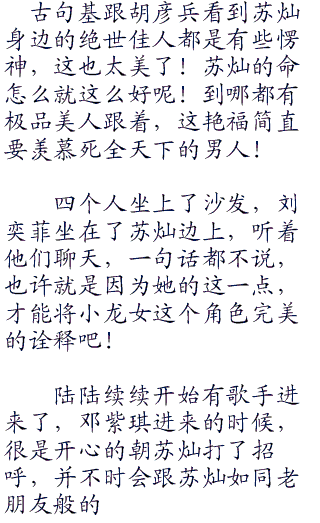 古句基跟胡彦兵看到苏灿
身边的绝世佳人都是有些愣
神，这也太美了！苏灿的命
怎么就这么好呢！到哪都有
极品美人跟着，这艳福简直
要羡慕死全天下的男人！
四个人坐上了沙发，刘
奕菲坐在了苏灿边上，听着
他们聊天，一句话都不说，
也许就是因为她的这一点，
才能将小龙女这个角色完美
的诠释吧！
陆陆续续开始有歌手进
来了，邓紫琪进来的时候，
很是开心的朝苏灿打了招
呼，并不时会跟苏灿如同老
朋友般的